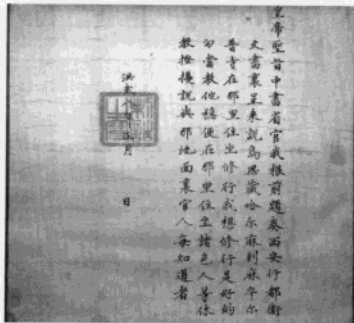 皇帝聖旨中書省官我根前題奏西安行都衛
文書裏呈來說烏思藏哈尔麻剌麻卒尔
普寺在那里住坐修行我想修行是好的
勾當教他穩便在那里住坐諸色人等休
教搔擾說與那地面裏官人每知道者
洪武八年正月 日